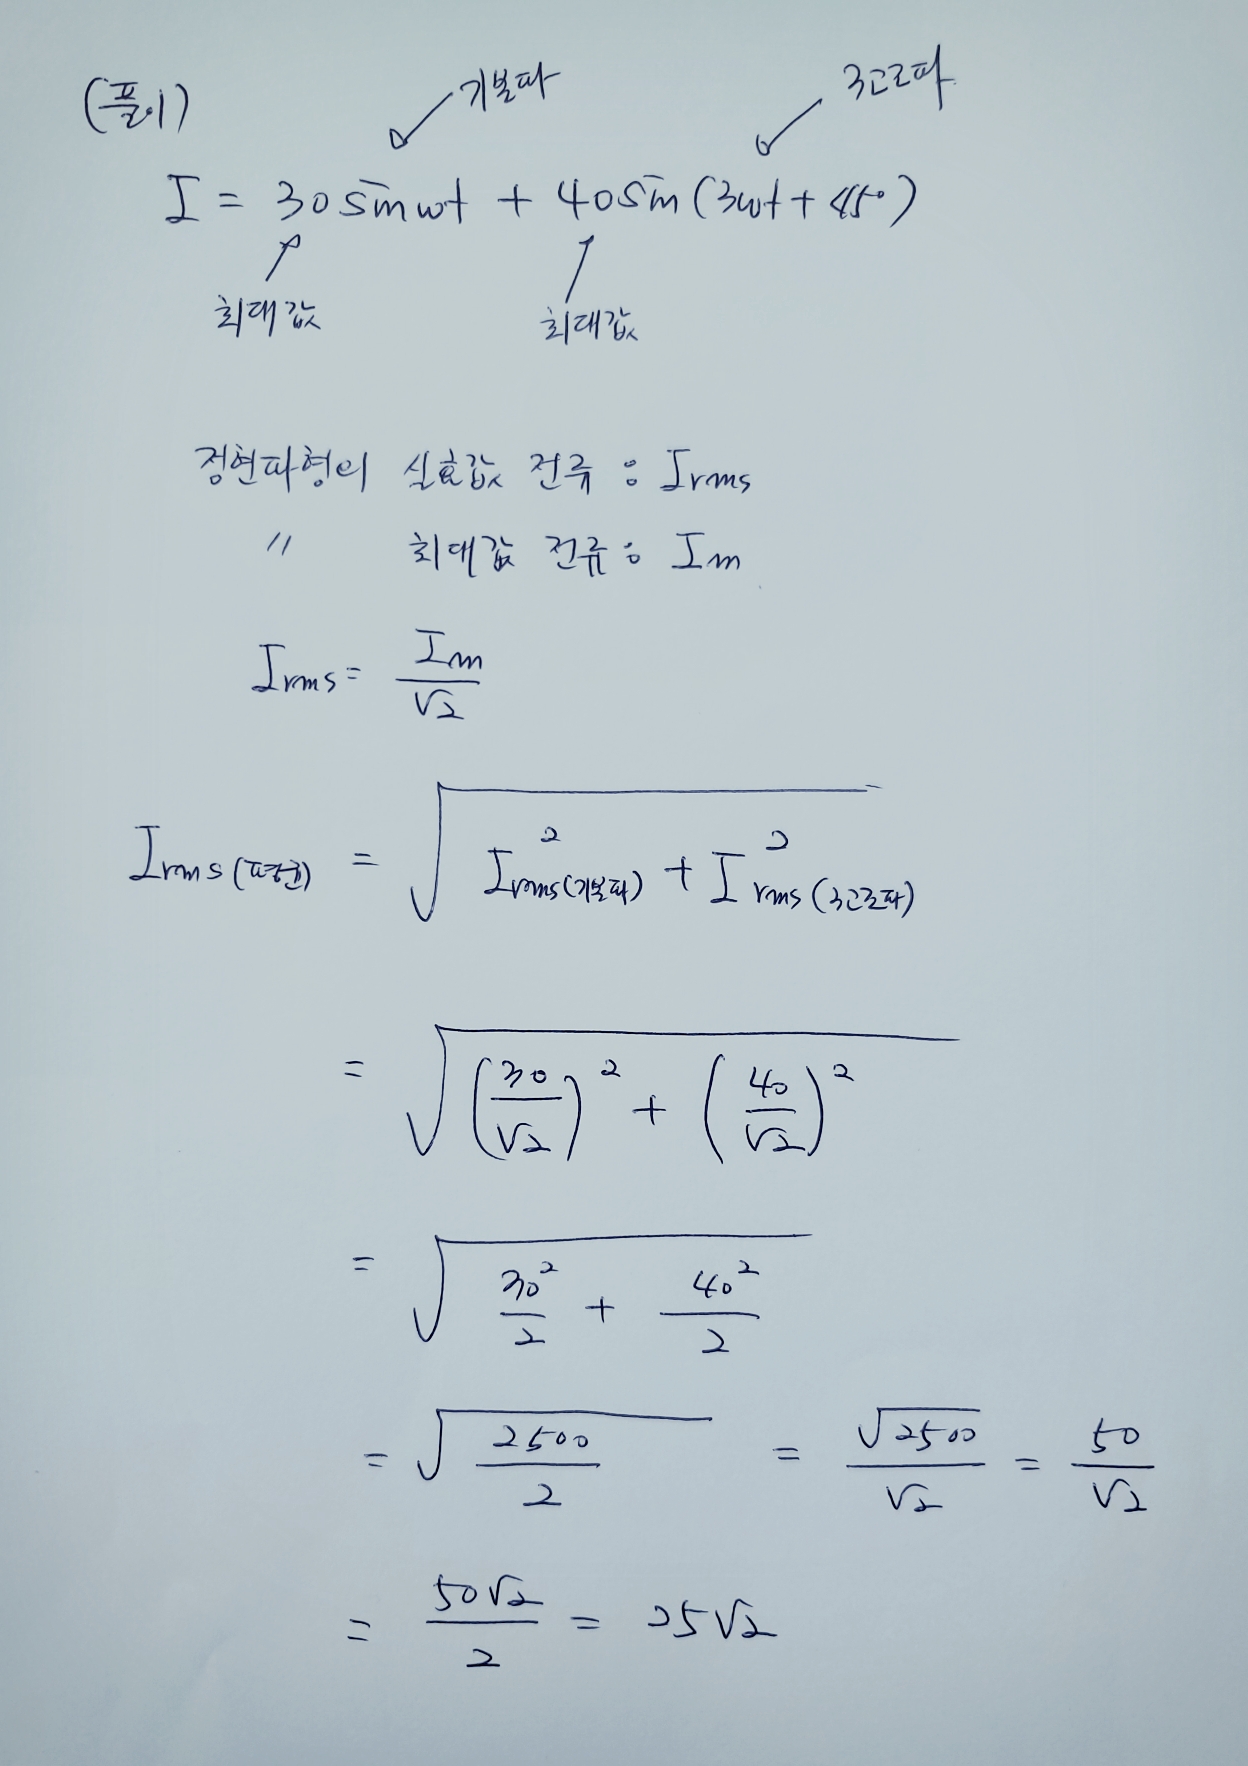 (풀이)
기본파
3고조파
I = 30 sin wt + 40 sin (3wt + 45°)
최대값
최대값
정현파형의 실효값 전류 : Irms
〃 최대값 전류 : Im
Irms = Im/√2
Irms(평균) = √(I²rms(기본파) + I²rms(3고조파))
= √((30/√2)² + (40/√2)²)
= √(30²/2 + 40²/2)
= √(2500/2) = √2500/√2 = 50/√2
= 50√2/2 = 25√2